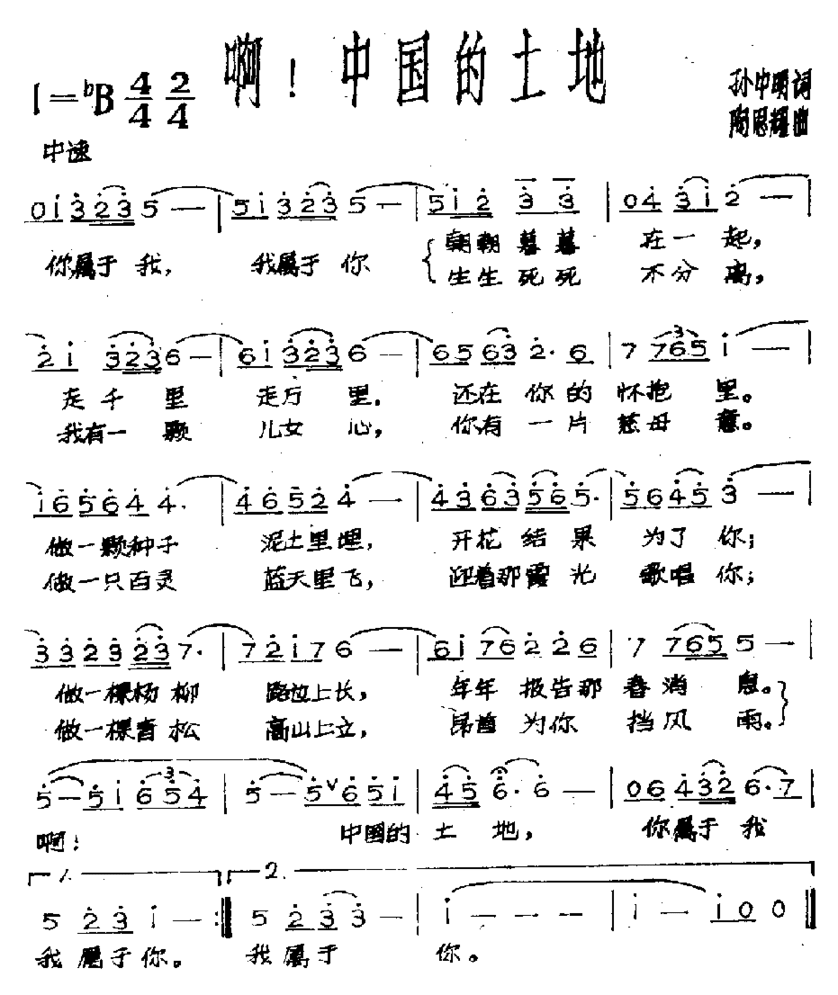 啊！中国的土地
1=♭B 4/4 2/4
孙中明词
陶思耀曲
中速
0i3235 — | 5i3235 — | 5i2 3 3 | 043i2 — |
你属于我， 我属于你 朝朝暮暮 在一起，
生生死死 不分离，
2i 3236 — | 6i3236 — | 65632·6 | 7 765i — |
走千里 走万里， 还在你的怀抱里。
我有一颗 儿女心， 你有一片慈母意。
i65644· | 46524 — | 4363565· | 56453 — |
做一颗种子 泥土里埋， 开花结果 为了你；
做一只百灵 蓝天里飞， 迎着那霞光 歌唱你；
3323237· | 72i76 — | 6i76226 | 7 7655 — |
做一棵杨柳 路边上长， 年年报告那春消息。
做一棵青松 高山上立， 昂首为你挡风雨。
5—5i654 | 5—5∨65i | 456·6 — | 064326·7 |
啊！ 中国的土地， 你属于我
1. 2.
5 23i — :‖ 5 233 — | i — — — | i — i00 ‖
我属于你。 我属于 你。